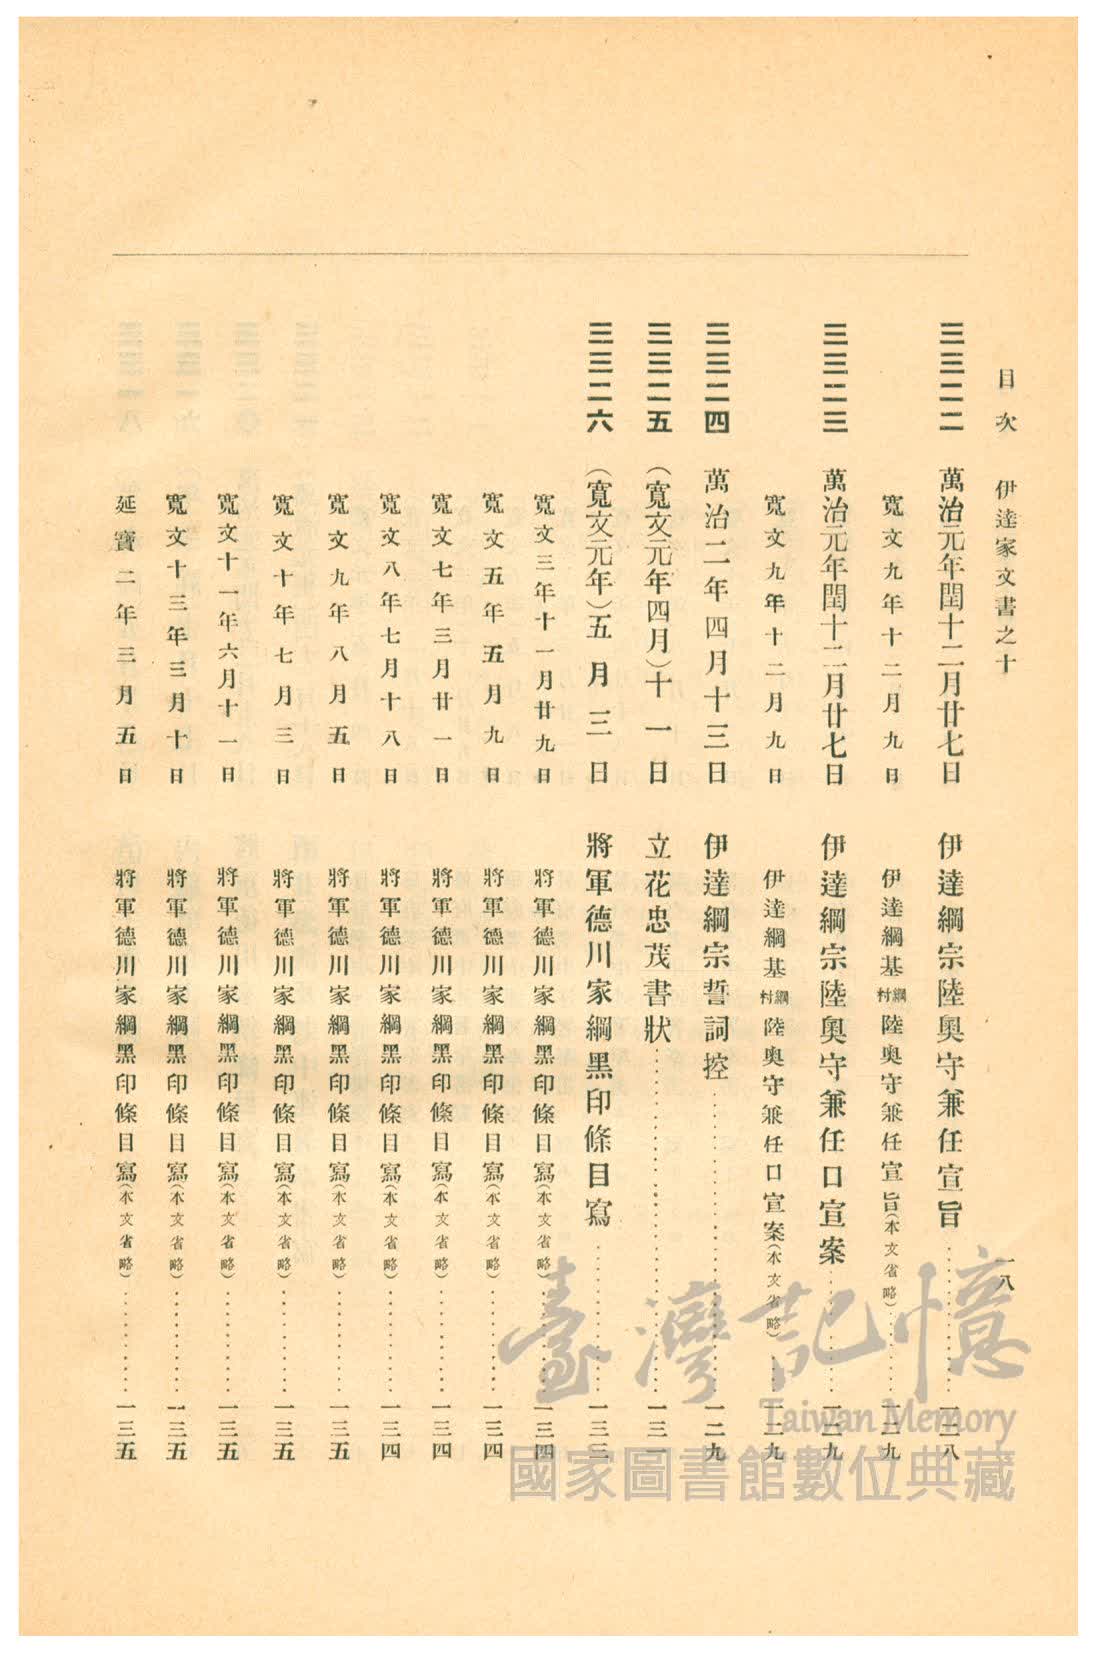 目次　伊達家文書之十　一八
三三二二　萬治元年閏十二月廿七日　伊達綱宗陸奧守兼任宣旨…………一二八
寬文九年十二月九日　伊達綱基綱村陸奧守兼任宣旨（本文省略）…………一二九
三三二三　萬治元年閏十二月廿七日　伊達綱宗陸奧守兼任口宣案…………一二九
寬文九年十二月九日　伊達綱基綱村陸奧守兼任口宣案（本文省略）…………一二九
三三二四　萬治二年四月十三日　伊達綱宗誓詞控…………一二九
三三二五　（寬文元年四月）十一日　立花忠茂書狀…………一三一
三三二六　（寬文元年）五月三日　將軍德川家綱黑印條目寫…………一三三
寬文三年十一月廿九日　將軍德川家綱黑印條目寫（本文省略）…………一三四
寬文五年五月九日　將軍德川家綱黑印條目寫（本文省略）…………一三四
寬文七年三月廿一日　將軍德川家綱黑印條目寫（本文省略）…………一三四
寬文八年七月十八日　將軍德川家綱黑印條目寫（本文省略）…………一三四
寬文九年八月五日　將軍德川家綱黑印條目寫（本文省略）…………一三五
寬文十年七月三日　將軍德川家綱黑印條目寫（本文省略）…………一三五
寬文十一年六月十一日　將軍德川家綱黑印條目寫（本文省略）…………一三五
寬文十三年三月十日　將軍德川家綱黑印條目寫（本文省略）…………一三五
延寶二年三月五日　將軍德川家綱黑印條目寫（本文省略）…………一三五
臺灣記憶
Taiwan Memory
國家圖書館數位典藏